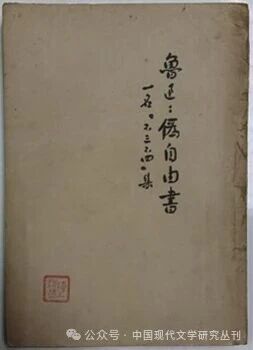 魯迅：偽自由書
一名：“不三不四”集
公众号 · 中国现代文学研究丛刊